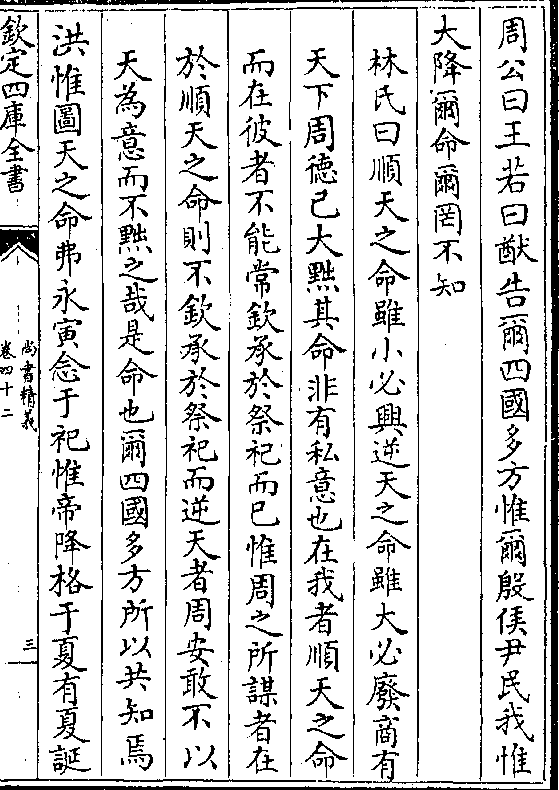 周公曰王若曰猷告爾四國多方惟爾殷侯尹民我惟
大降爾命爾罔不知
林氏曰順天之命雖小必興逆天之命雖大必廢商有
天下周德已大黜其命非有私意也在我者順天之命
而在彼者不能常欽承於祭祀而已惟周之所謀者在
於順天之命則不欽承於祭祀而逆天者周安敢不以
天為意而不黜之哉是命也爾四國多方所以共知焉
洪惟圖天之命弗永寅念于祀惟帝降格于夏有夏誕
欽定四庫全書
尚書精義
卷四十二
三